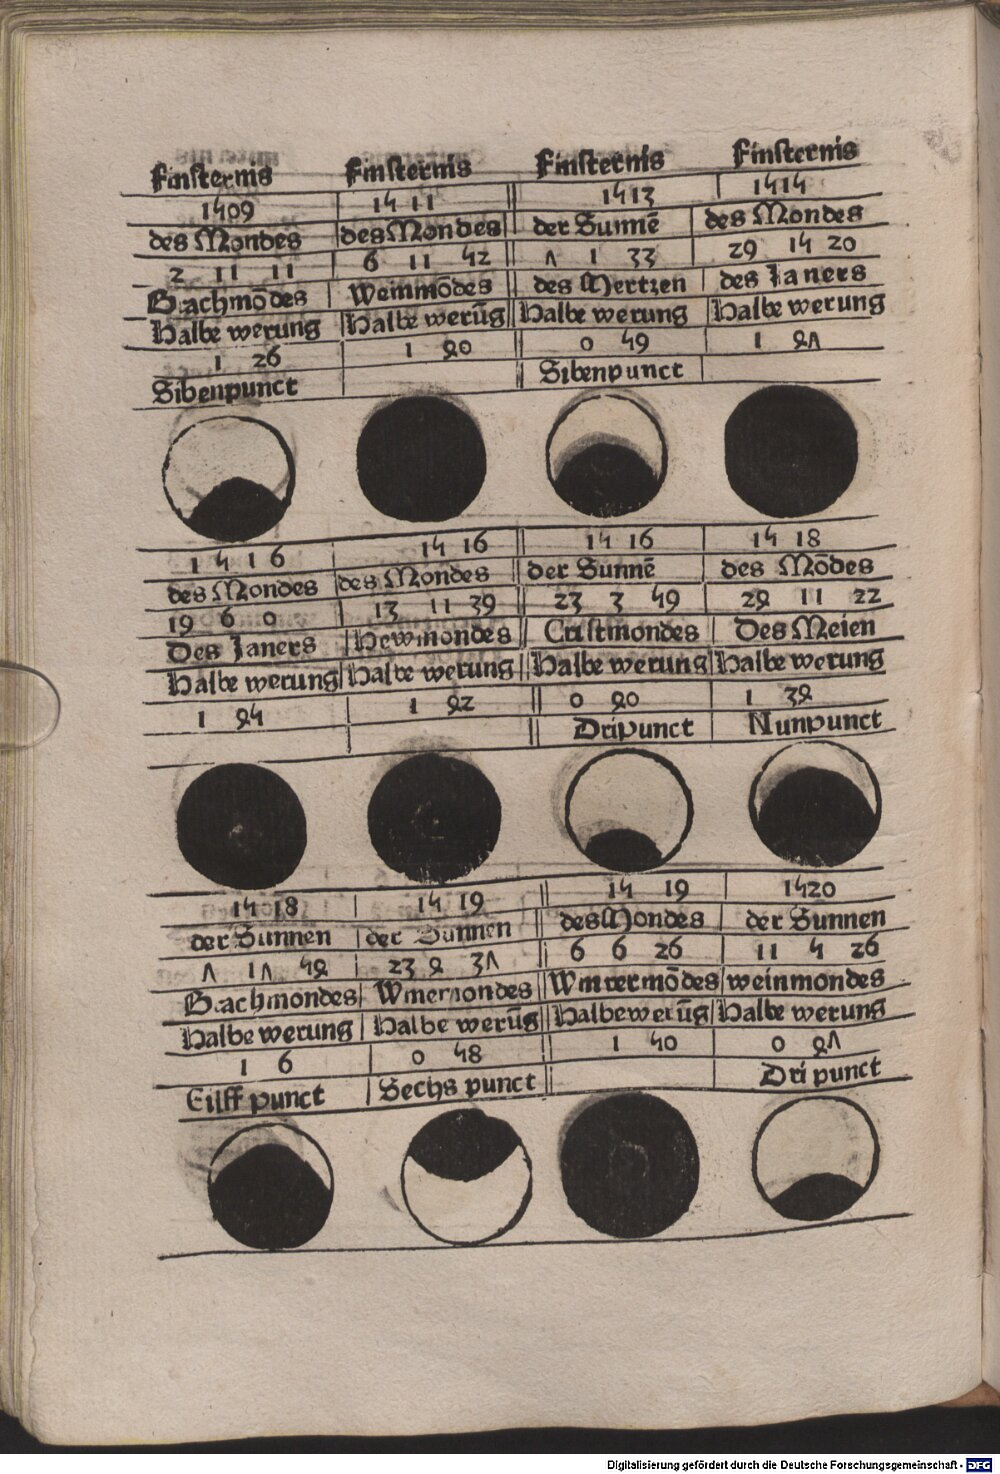 Finsternis Finsternis Finsternis Finsternis
1509 1511 1513 1514
des Mondes des Mondes der Sunnē des Mondes
2 11 11 6 11 52 7 1 33 29 15 20
Brachmōdes Weinmōdes des Mertzen des Janers
Halbe werung Halbe werūg Halbe werung Halbe werung
1 26 1 40 0 59 1 47
Sibenpunct Sibenpunct
1516 1516 1516 1518
des Mondes des Mondes der Sunnē des Mōdes
19 6 0 13 11 39 23 3 59 24 11 22
Des Janers Hewmondes Cristmondes Des Meien
Halbe werung Halbe werung Halbe werung Halbe werung
1 45 1 42 0 40 1 34
Dripunct Nunpunct
1518 1519 1519 1520
der Sunnen der Sunnen des Mondes der Sunnen
7 17 54 23 4 37 6 6 26 11 5 26
Brachmondes Wintermōdes weinmondes
Halbe werung Halbe werūg Halbe werūg Halbe werung
1 6 0 58 1 50 0 47
Eilff punct Sechs punct Dri punct
Digitalisierung gefördert durch die Deutsche Forschungsgemeinschaft - DFG